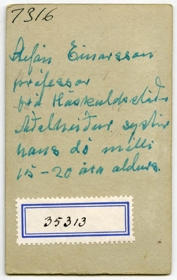 7316
Stefán Einarsson
prófessor
frá Höskuldsstöðum
Aðalheiður systir
hans dó milli
15-20 ára aldurs.
35313